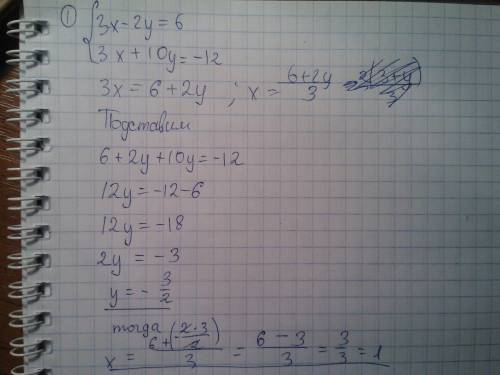 ① { 3x-2y=6
3x+10y=-12
3x=6+2y ; x=(6+2y)/3
Подставим
6+2y+10y=-12
12y=-12-6
12y=-18
2y=-3
y=-3/2
тогда
x = (6+(2·3/2))/3 = (6-3)/3 = 3/3 = 1